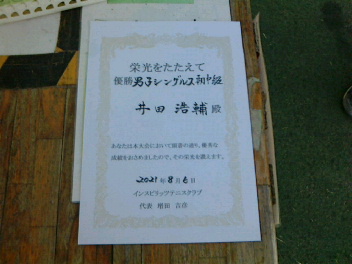 栄光をたたえて
優勝 男子シングルス初中級
井田 浩輔 殿
あなたは本大会において頭書の通り、優秀な
成績をおさめましたので、その栄光を讃えます。
2021年8月6日
インスピリッツテニスクラブ
代表 増田 吉彦